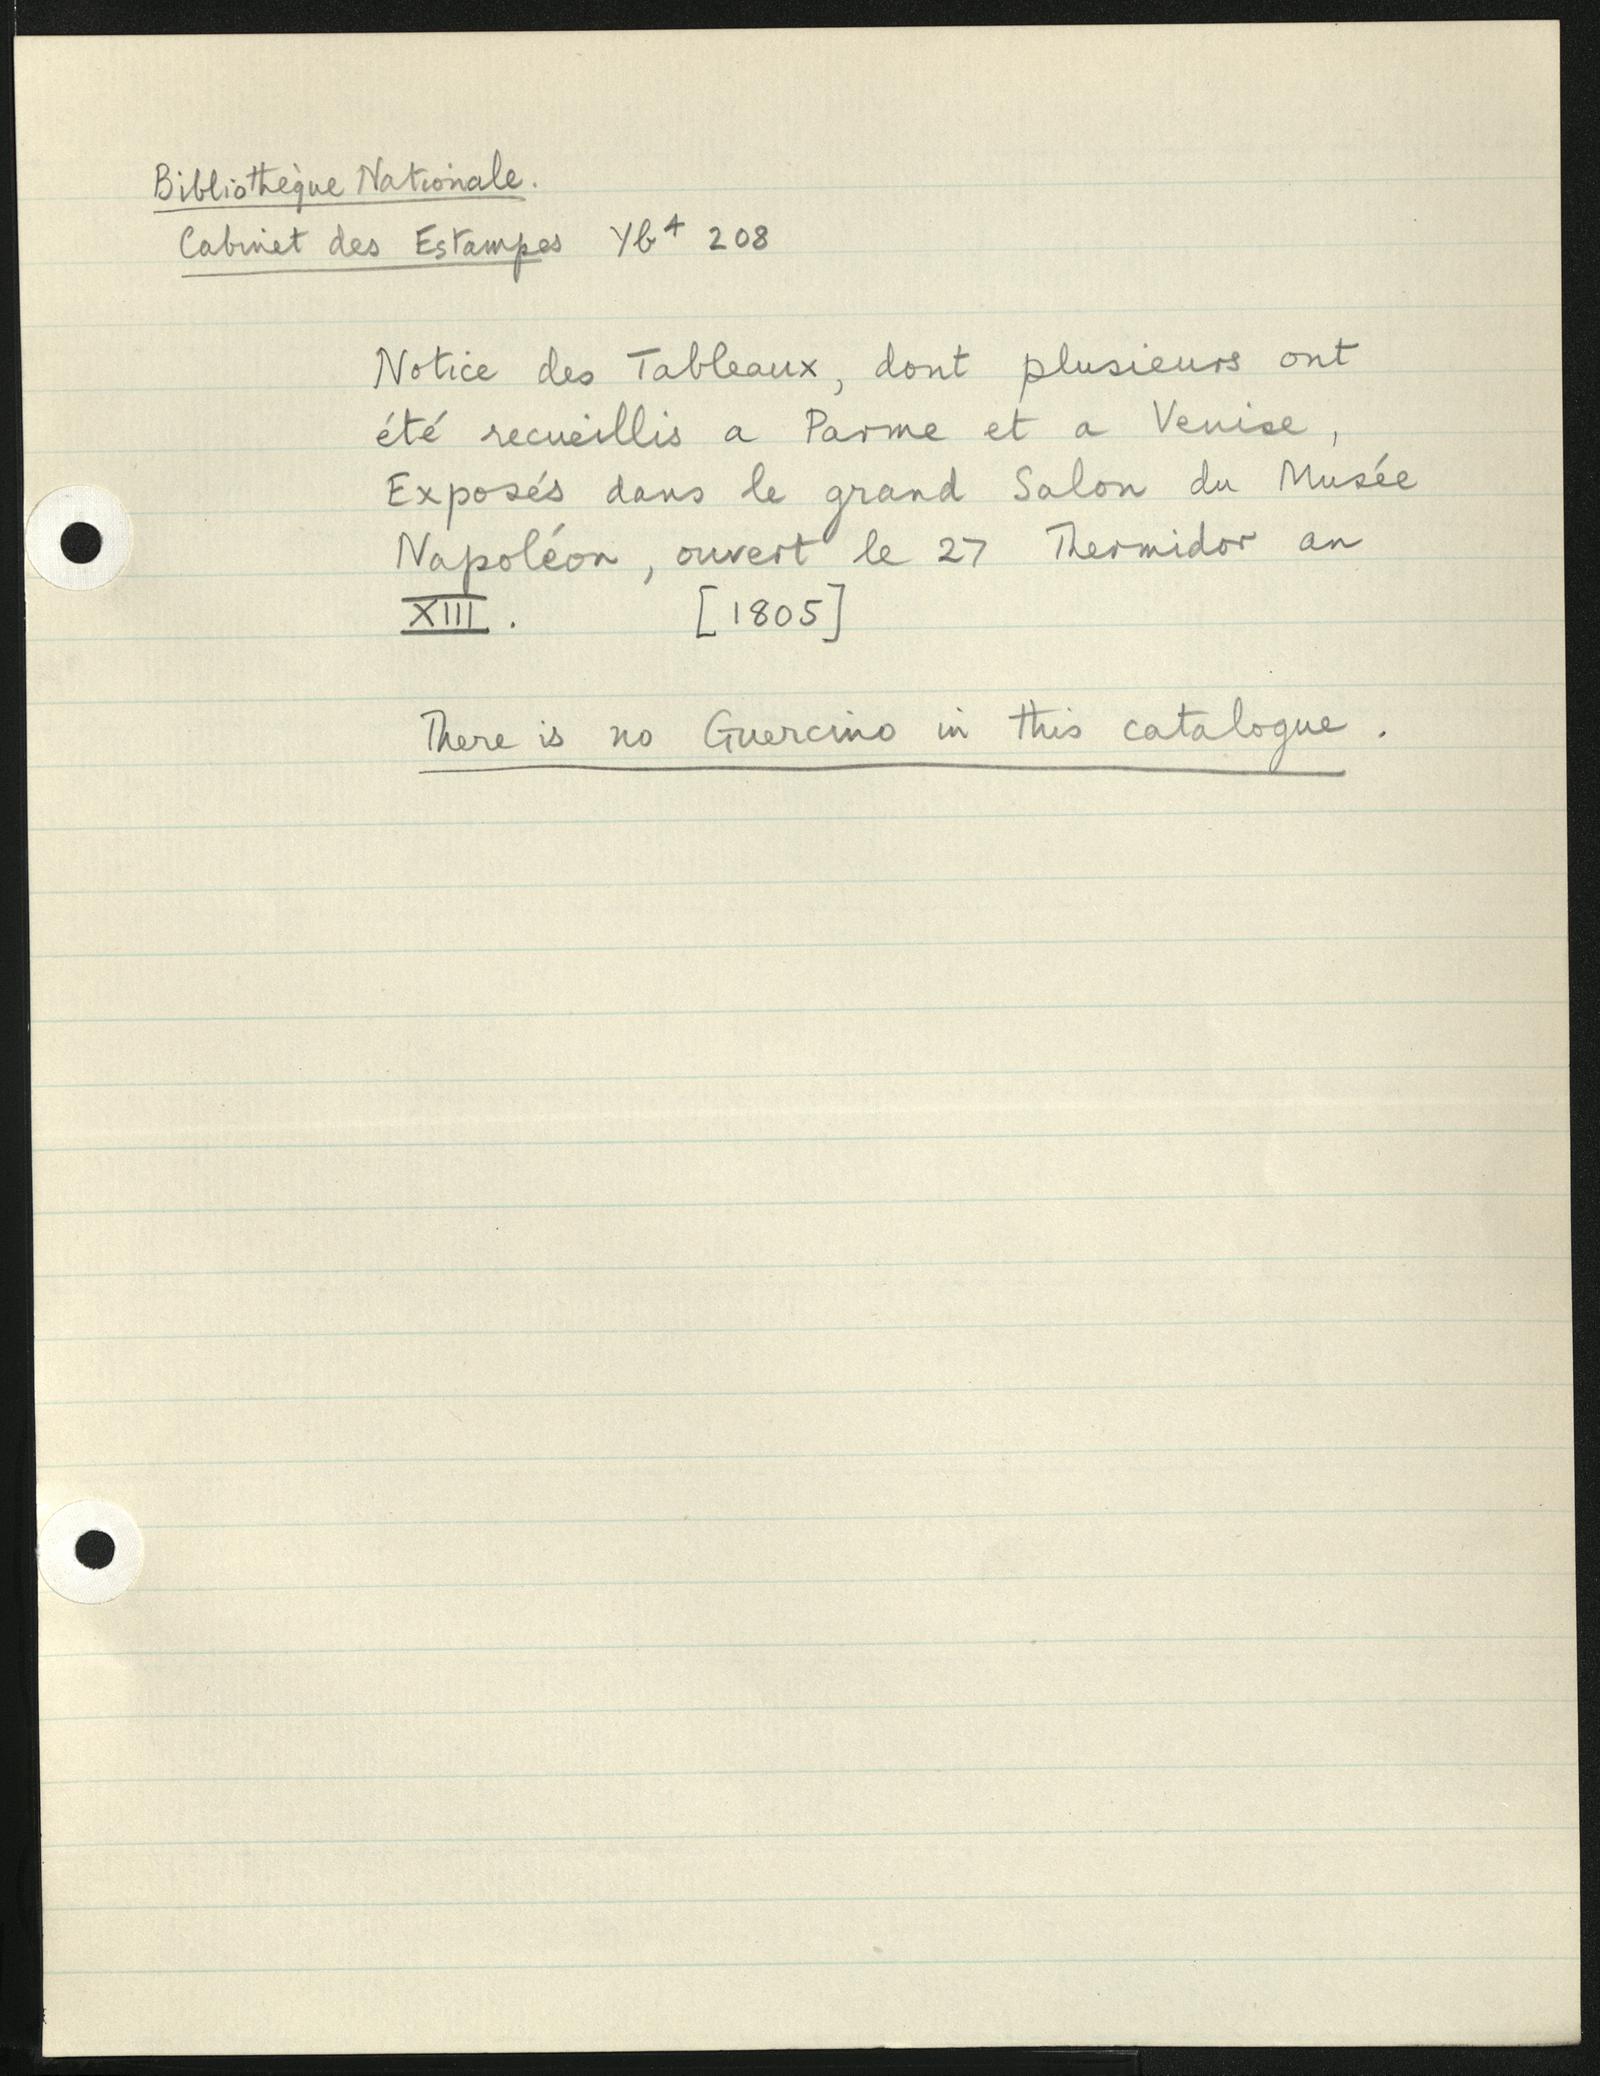 Bibliothèque Nationale.
Cabinet des Estampes Yb⁴ 208
Notice des Tableaux, dont plusieurs ont
été recueillis a Parme et a Venise,
Exposés dans le grand Salon du Musée
Napoléon, ouvert le 27 Thermidor an
XIII. [1805]
There is no Guercino in this catalogue.